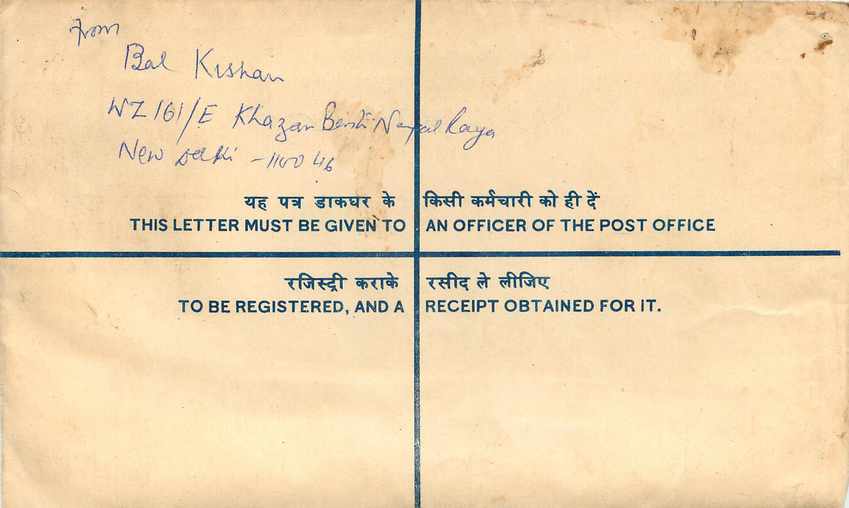 From
Bal Kishan
WZ 161/E Khazan Basti Nangal Raya
New Delhi - 110046
यह पत्र डाकघर के किसी कर्मचारी को ही दें
THIS LETTER MUST BE GIVEN TO AN OFFICER OF THE POST OFFICE
रजिस्ट्री कराके रसीद ले लीजिए
TO BE REGISTERED, AND A RECEIPT OBTAINED FOR IT.